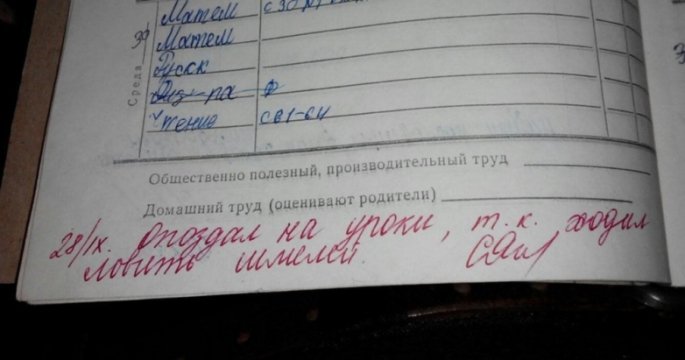 Матем
Среда 30 Матем
Русск
Физ-ра ф
Чтение с 61-64
Общественно полезный, производительный труд
Домашний труд (оценивают родители)
28/IX. Опоздал на уроки, т.к. ходил
ловить шмелей.